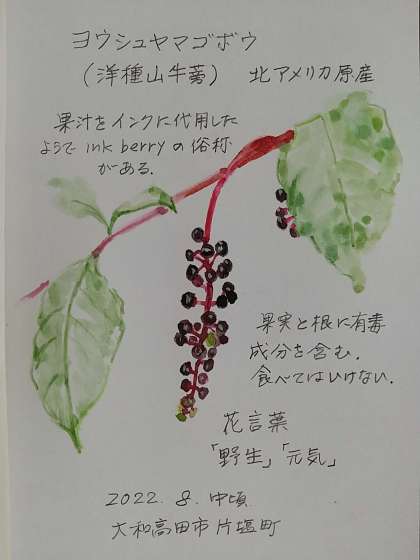 ヨウシュヤマゴボウ
(洋種山牛蒡) 北アメリカ原産
果汁をインクに代用した
ようで ink berry の俗称
がある.
果実と根に有毒
成分を含む.
食べてはいけない.
花言葉
「野生」「元気」
2022. 8. 中頃
大和高田市片塩町